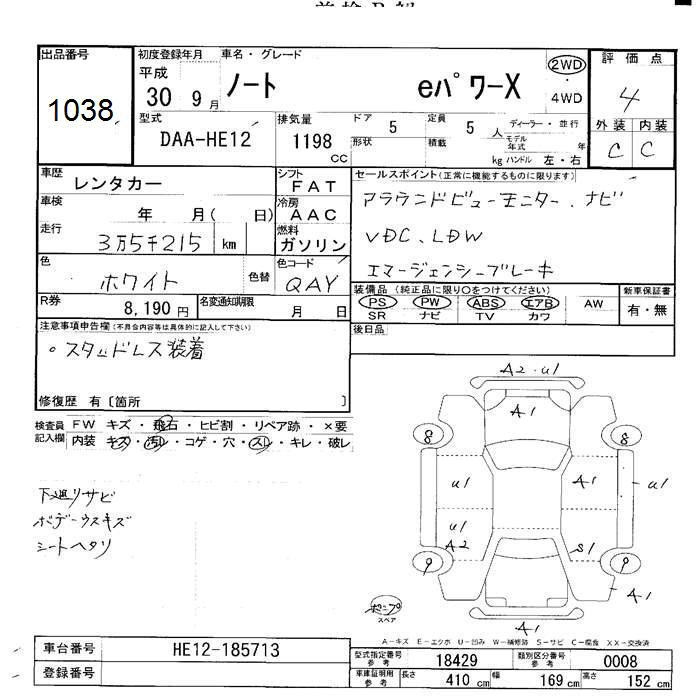 出品番号
1038
初度登録年月
平成
30 9月
車名・グレード
ノート eパワーX
2WD
4WD
評価点
4
型式
DAA-HE12
排気量
1198
CC
ドア
5
形状
定員
5
人
積載
kg
ディーラー・並行
モデル年式 年
ハンドル 左・右
外装 内装
C C
車歴
レンタカー
シフト
FAT
セールスポイント(正常に機能するものに限ります)
アラウンドビューモニター、ナビ
VDC、LDW
エマージェンシーブレーキ
車検
年 月( 日)
冷房
AAC
走行
3万5千215 km
燃料
ガソリン
色
ホワイト
色替
色コード
QAY
装備品(純正品に限り○をつけてください)
PS PW ABS エアB AW
SR ナビ TV カワ
新車保証書
有・無
R券
8,190円
名変通知期限
月 日
後日品
注意事項申告欄(不具合内容等は具体的に記入して下さい)
○スタッドレス装着
修復歴 有〔箇所 〕
検査員記入欄
FW キズ・飛石・ヒビ割・リペア跡・×要
内装 キズ・汚レ・コゲ・穴・スレ・キレ・破レ
下廻リサビ
ボデーウスキズ
シートヘタリ
A2・U1
A1
8 8
U1 A1 U1
U1
A2 S1
9 9
A1
スペア
A1
A-キズ E-エクボ U-凹み W-補修跡 S-サビ C-腐食 XX-交換済
車台番号
HE12-185713
登録番号
型式指定番号 参考
18429
類別区分番号 参考
0008
車庫証明用 参考
長さ 410 cm
幅 169 cm
高さ 152 cm